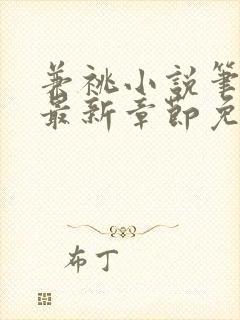 兼祧小說筆
最新章節免
布丁